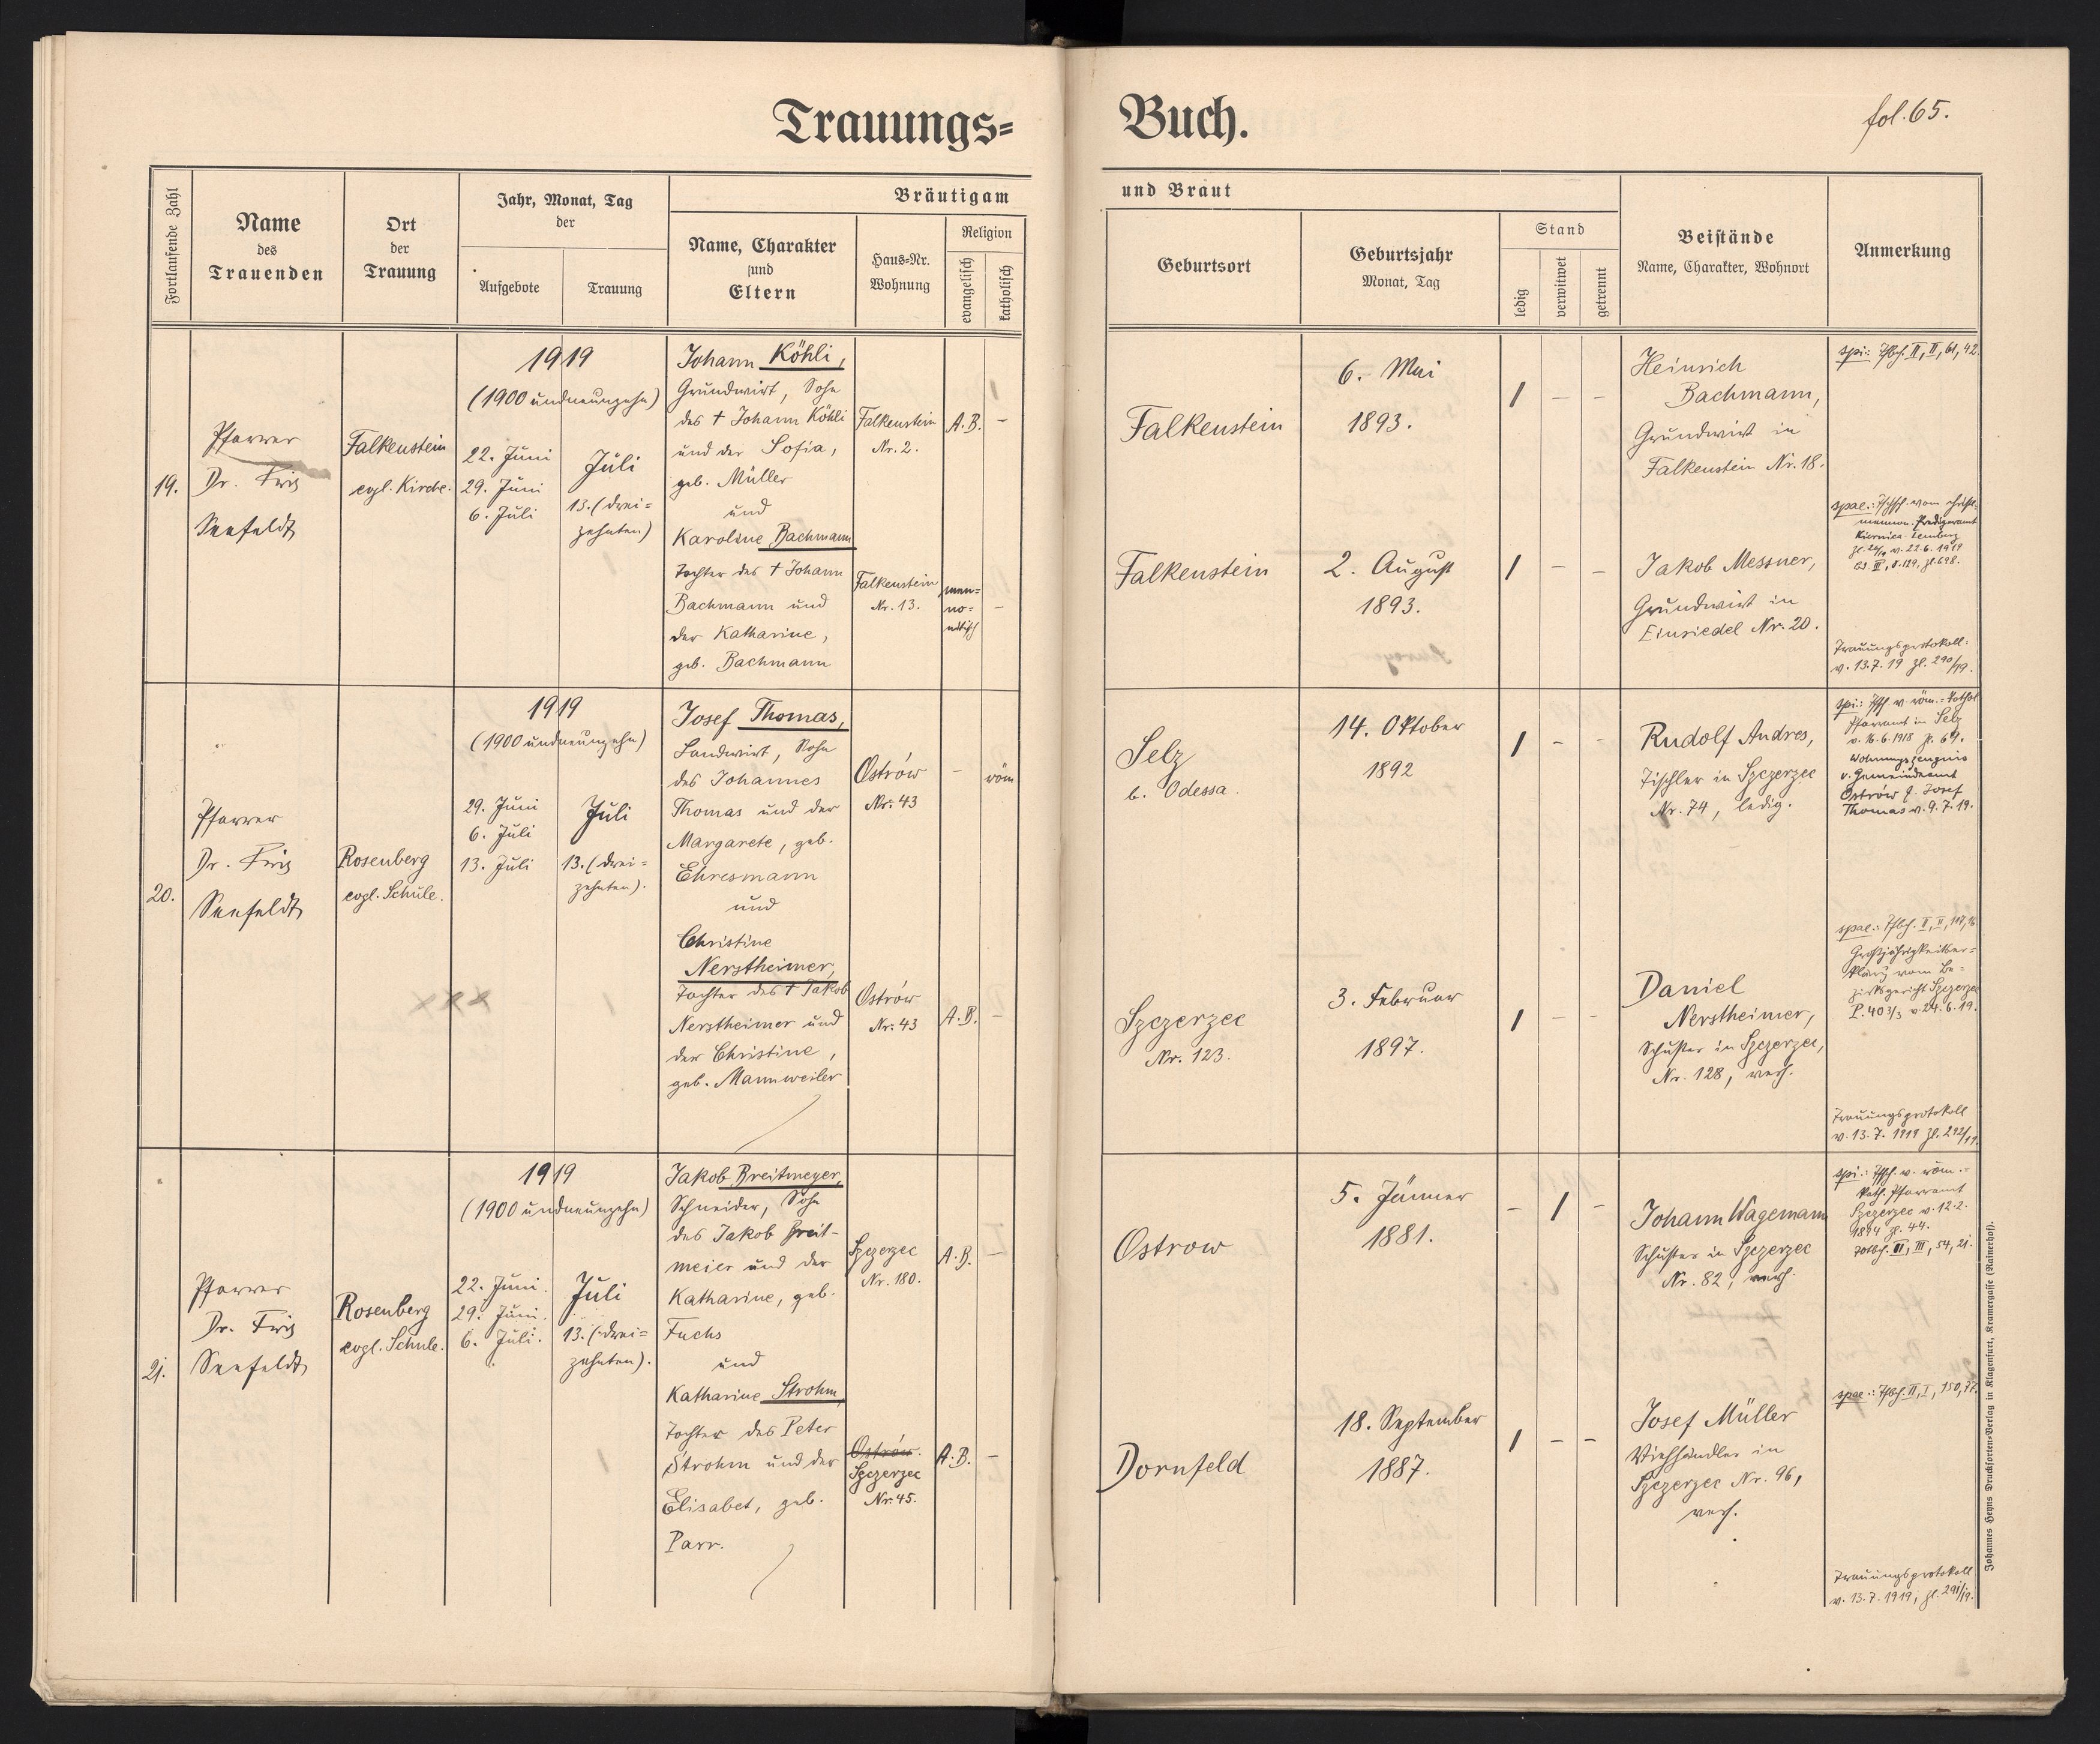 Trauungs=
Buch.
fol. 65.
Fortlaufende Zahl
Name
des
Trauenden
Ort
der
Trauung
Jahr, Monat, Tag
der
Aufgebote
Trauung
Bräutigam
Name, Charakter
und
Eltern
Haus=Nr.
Wohnung
Religion
evangelisch
katholisch
und Braut
Geburtsort
Geburtsjahr
Monat, Tag
Stand
ledig
verwitwet
getrennt
Beistände
Name, Charakter, Wohnort
Anmerkung
19.
Pfarrer
Dr. Fritz
Seefeldt
Falkenstein
evgl. Kirche.
1919
(1900 undneunzehn)
22. Juni
29. Juni
6. Juli
Juli
13. (drei=
zehnten)
Johann Köhli,
Grundwirt, Sohn
des † Johann Köhli
und der Sofia,
geb. Müller
und
Karoline Bachmann
Tochter des † Johann
Bachmann und
der Katharine,
geb. Bachmann
Falkenstein
Nr. 2.
A.B. –
Falkenstein
Nr. 13.
men=
no=
nitisch –
Falkenstein
6. Mai
1893.
1 – –
Falkenstein
2. August
1893.
1 – –
Heinrich
Bachmann,
Grundwirt in
Falkenstein Nr. 18.
Jakob Messner,
Grundwirt in
Einsiedel Nr. 20.
spi: Tfbch. II, II, 61, 42.
spae.: Tfschch. vom christl.
mennon. Predigeramt
Kiernica-Lemberg
v. 22.6.1919
Bd. III, S. 129, zl. 698.
Trauungsprotokoll:
v. 13.7.19 zl. 290/19.
20.
Pfarrer
Dr. Fritz
Seefeldt
Rosenberg
evgl. Schule.
1919
(1900 undneunzehn)
29. Juni
6. Juli
13. Juli
Juli
13. (drei=
zehnten).
Josef Thomas,
Landwirt, Sohn
des Johannes
Thomas und der
Margarete, geb.
Ehresmann
und
Christine
Nerstheimer,
Tochter des † Jakob
Nerstheimer und
der Christine,
geb. Mannweiler
Ostrów
Nr. 43
– röm
Ostrów
Nr. 43
A.B. –
Selz
b. Odessa.
14. Oktober
1892
1 – –
Szczerzec
Nr. 123.
3. Februar
1897.
1 – –
Rudolf Andres,
Tischler in Szczerzec
Nr. 74, ledig.
Daniel
Nerstheimer,
Schuster in Szczerzec,
Nr. 128, verh.
spi.: Tfsch. v. röm.-kathol
Pfarramt in Selz
v. 16.6.1918 zl. 69.
Wohnungszeugnis
v. Gemeindeamt
Ostrów f. Josef
Thomas v. 9.7.19.
spae.: Tfbch. II, II, 117,
Großjährigkeitser=
klärg vom Be=
zirksgericht Szczerzec
P. 403/3 v. 24.6.19.
Trauungsprotokoll
v. 13.7.1919 zl. 292/19.
21.
Pfarrer
Dr. Fritz
Seefeldt
Rosenberg
evgl. Schule.
1919
(1900 undneunzehn)
22. Juni.
29. Juni.
6. Juli.
Juli
13. (drei=
zehnten).
Jakob Breitmeyer,
Schneider, Sohn
des Jakob Breit-
meier und der
Katharine, geb.
Fuchs
und
Katharine Strohm,
Tochter des Peter
Strohm und der
Elisabet, geb.
Parr.
Szczerzec
Nr. 180.
A.B. –
Ostrów.
Szczerzec
Nr. 45.
A.B. –
Ostrow
5. Jänner
1881.
– 1 –
Dornfeld
18. September
1887.
1 – –
Johann Wagemann
Schuster in Szczerzec
Nr. 82, verh.
Josef Müller
Viehhändler in
Szczerzec Nr. 96,
verh.
spi.: Tfsch. v. röm.-
kath. Pfarramt
Szczerzec v. 12.2.
1894 zl. 44.
Totbch. III, III, 54, 21.
spae.: Tfbch. II, I, 150, 77.
Trauungsprotokoll
v. 13.7.1919, zl. 291/19.
Johannes Heyns Drucksorten=Verlag in Klagenfurt, Kramergasse (Rainerhof).